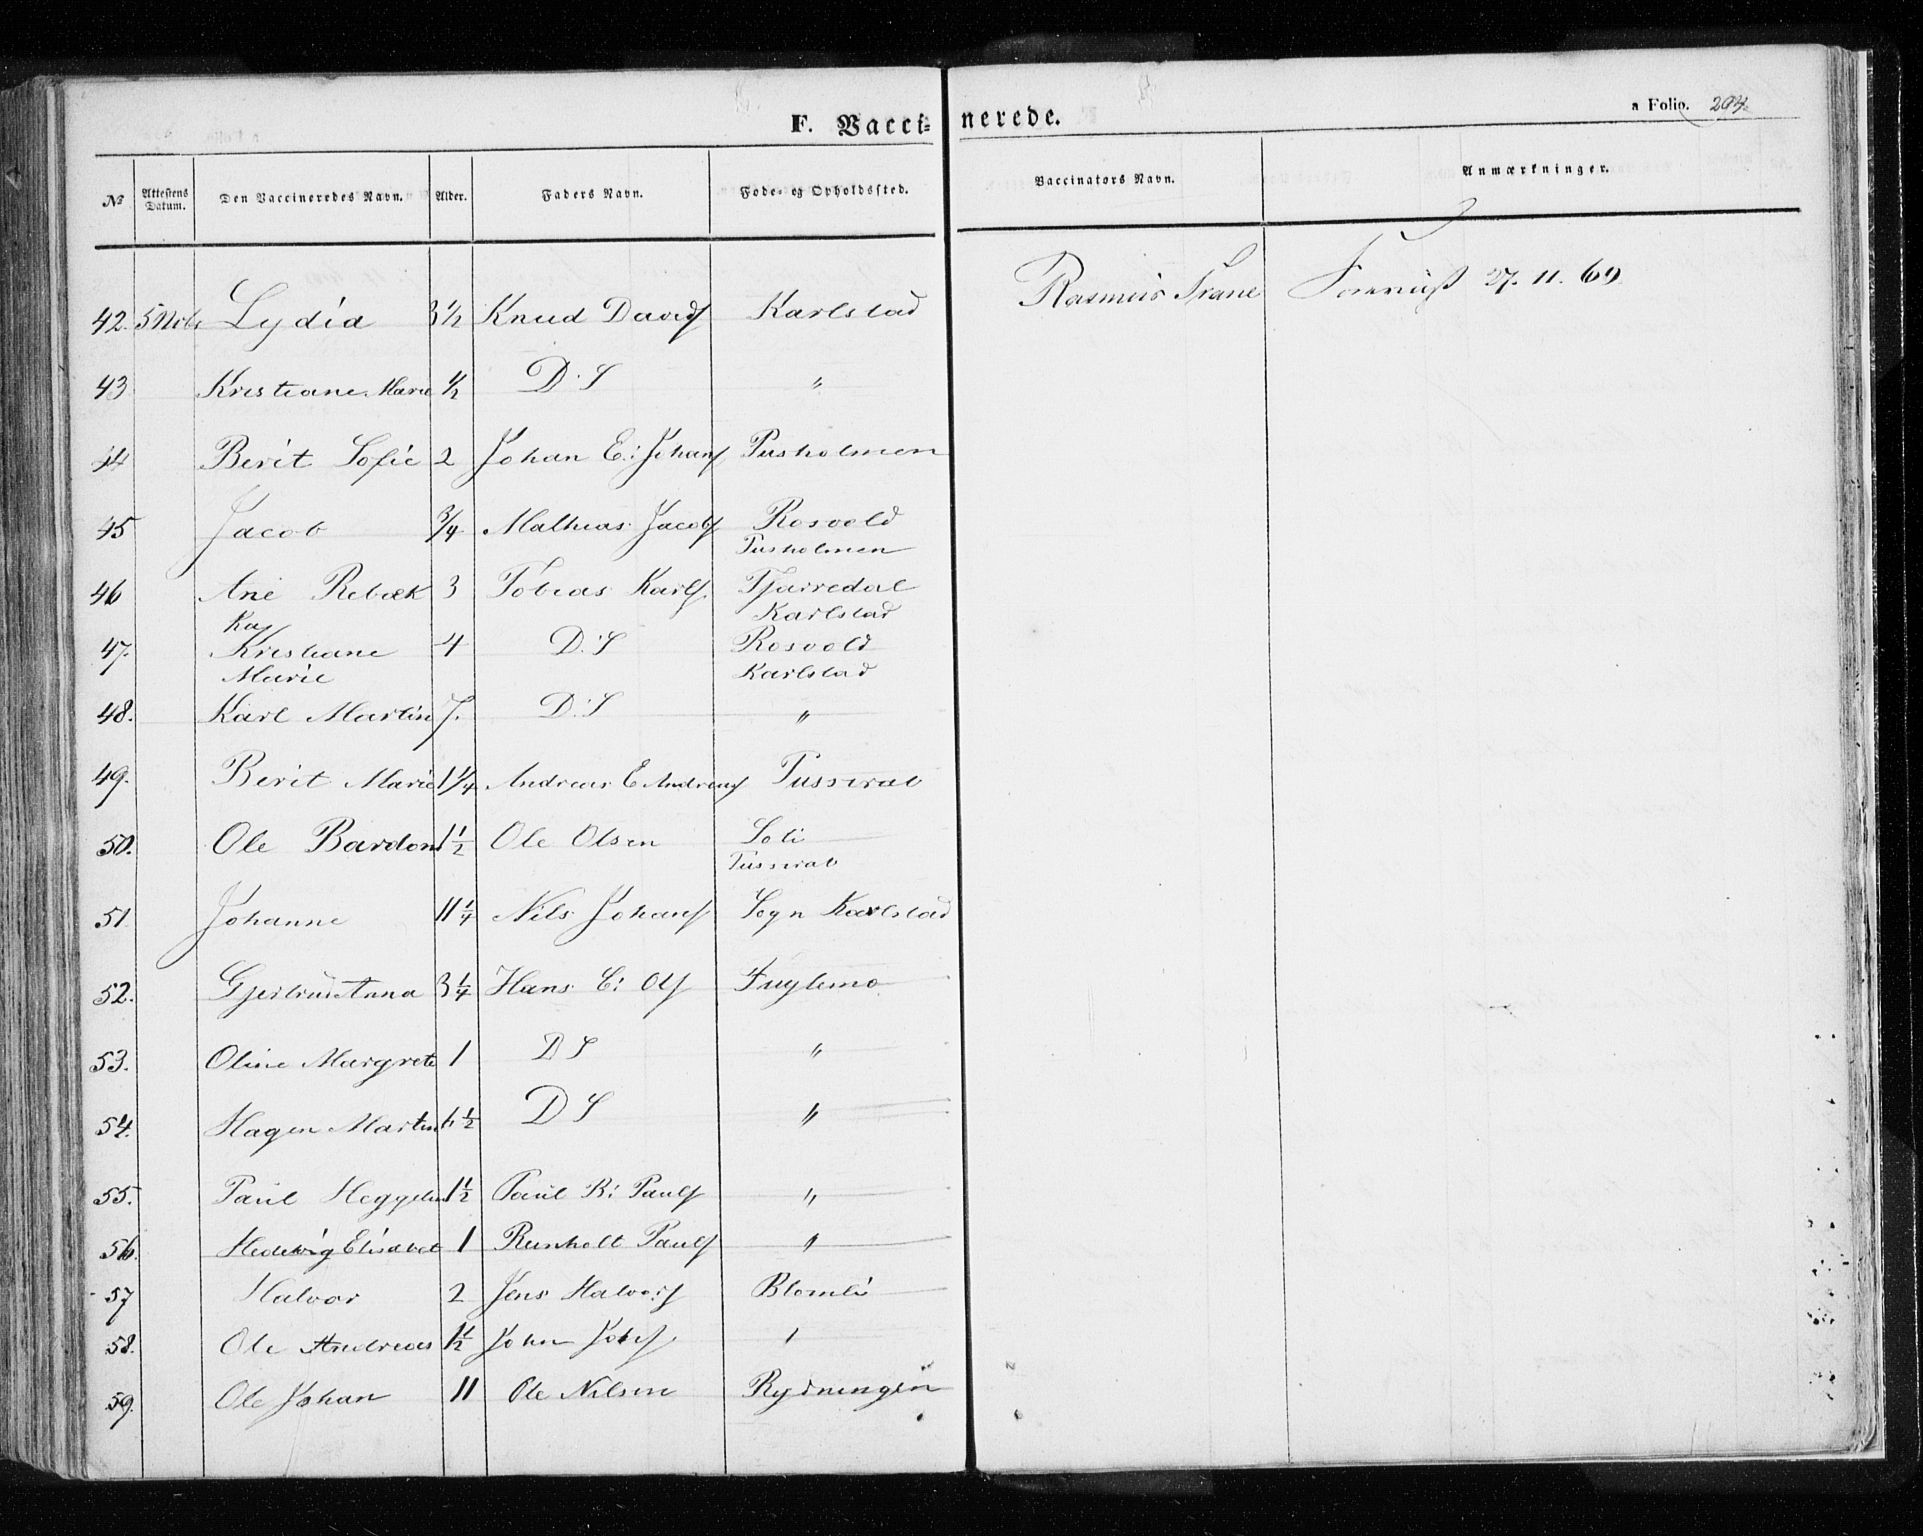 F. Vaccinerede.
a Folio. 294.
№ Attestens Datum. Den Vaccineredes Navn. Alder. Faders Navn. Føde- og Opholdssted. Vaccinators Navn. Anmærkninger.
42. 5 Lydia 3 1/2 Knud Davids Karlstad Rasmus Trane 27. 11. 69
43 Kristiane Marie 1/2 D. S "
44 Berit Sofie 2 Johan E: Johans Pusholmen
45 Jacob 3/4 Mathias Jacobs Rosvold
Pusholmen
46 Ane Rebek 3 Tobias Karls Fjarredal
ka Karlstad
47. Kristiane 4 D. S Rosvold
Marie Karlstad
48. Karl Martin 7. D. S "
49. Berit Marie 1 1/4 Andreas E Andreas
50. Ole Bardon 1 1/2 Ole Olsen Soli
51 Johanne 11 1/4 Nils Johans Sogn Karlstad
52. Gjertrud Anna 3 1/4 Hans E: Ols Fuglemo
53. Oline Margrete 1 D S "
54. Hagen Martin 6 1/2 D S "
55. Paul 1 1/2 Paul B: Pauls "
56. Hedevig Elisabet 1 Runholt Pauls "
57 Halvor 2 Jens Halvors Blomli
58. Ole Andreas 1 1/2 John "
59. Ole Johan 11 Ole Nilsen Rydningen